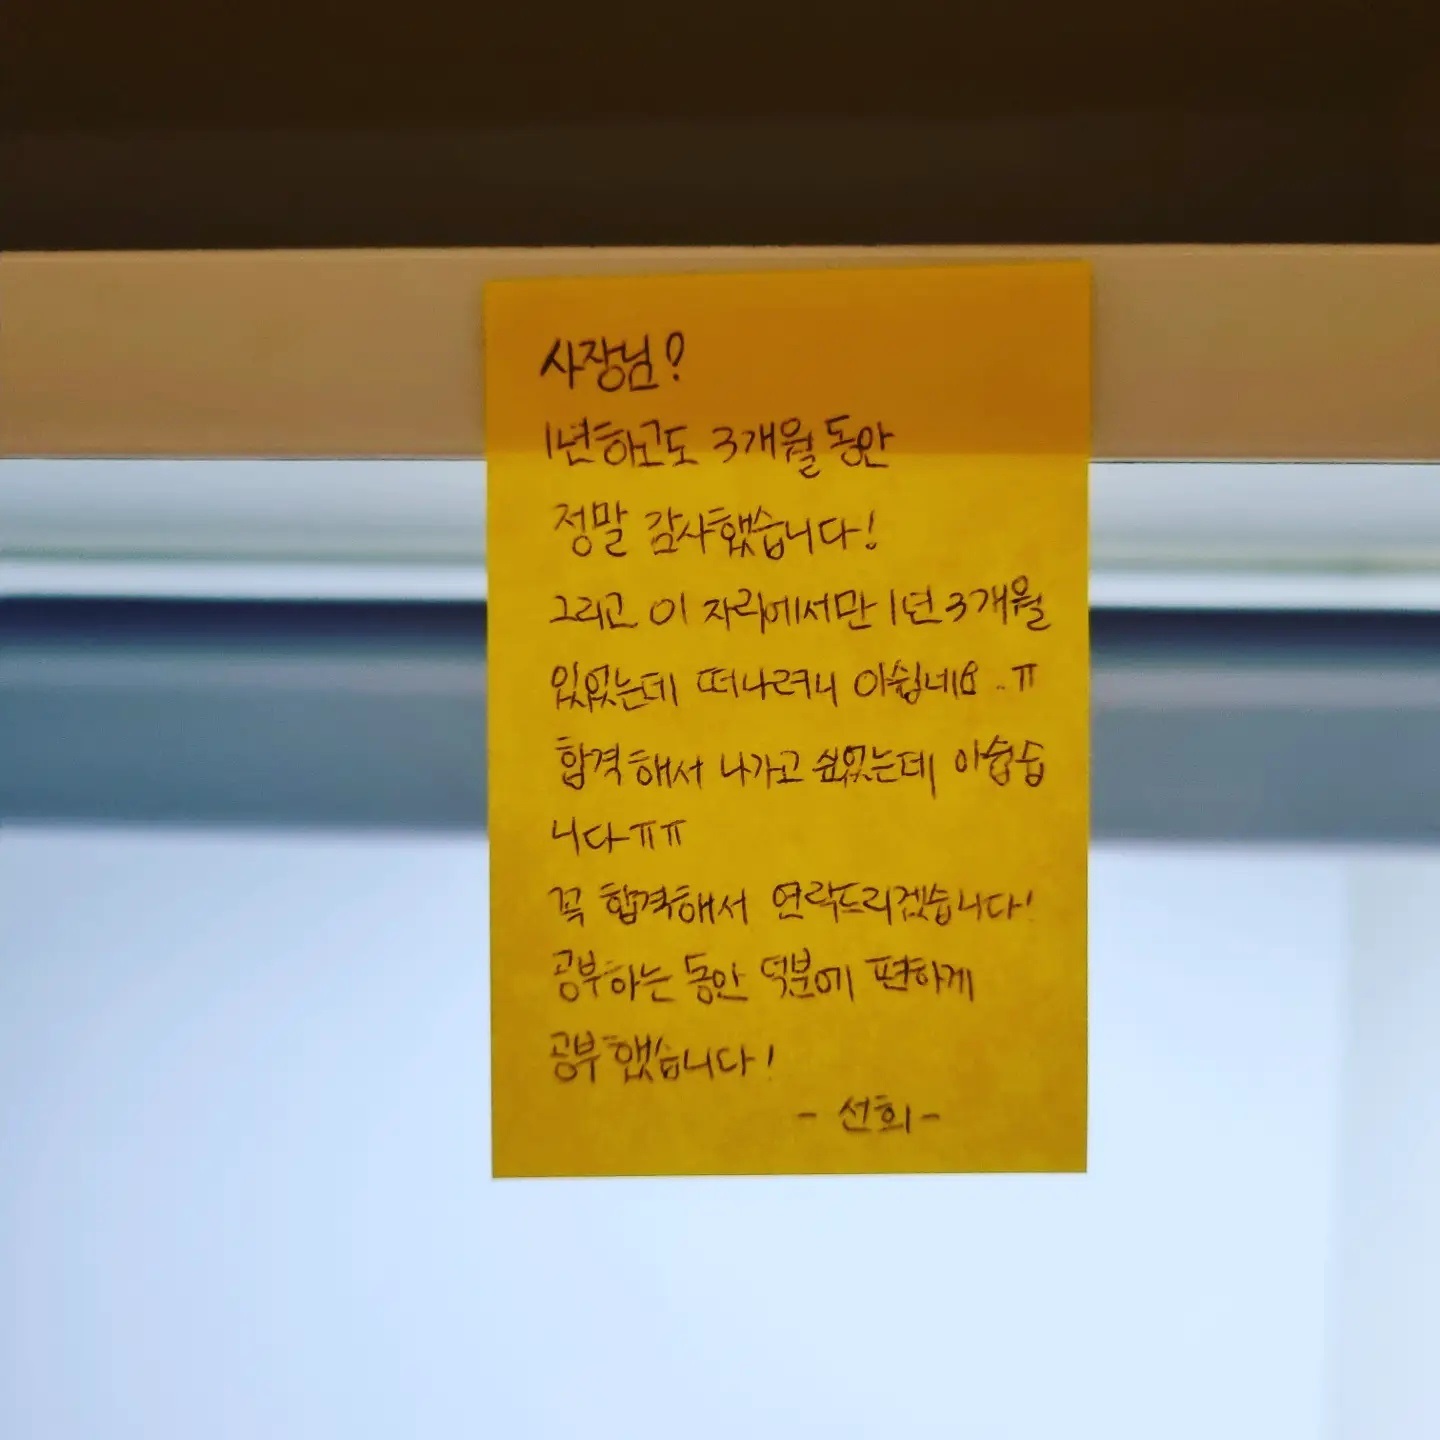 사장님?
1년하고도 3개월 동안
정말 감사했습니다!
그리고 이 자리에서만 1년 3개월
있었는데 떠나려니 아쉽네요..ㅠ
합격해서 나가고 싶었는데 아쉽습
니다ㅠㅠ
꼭 합격해서 연락드리겠습니다!
공부하는 동안 덕분에 편하게
공부했습니다!
- 선희 -